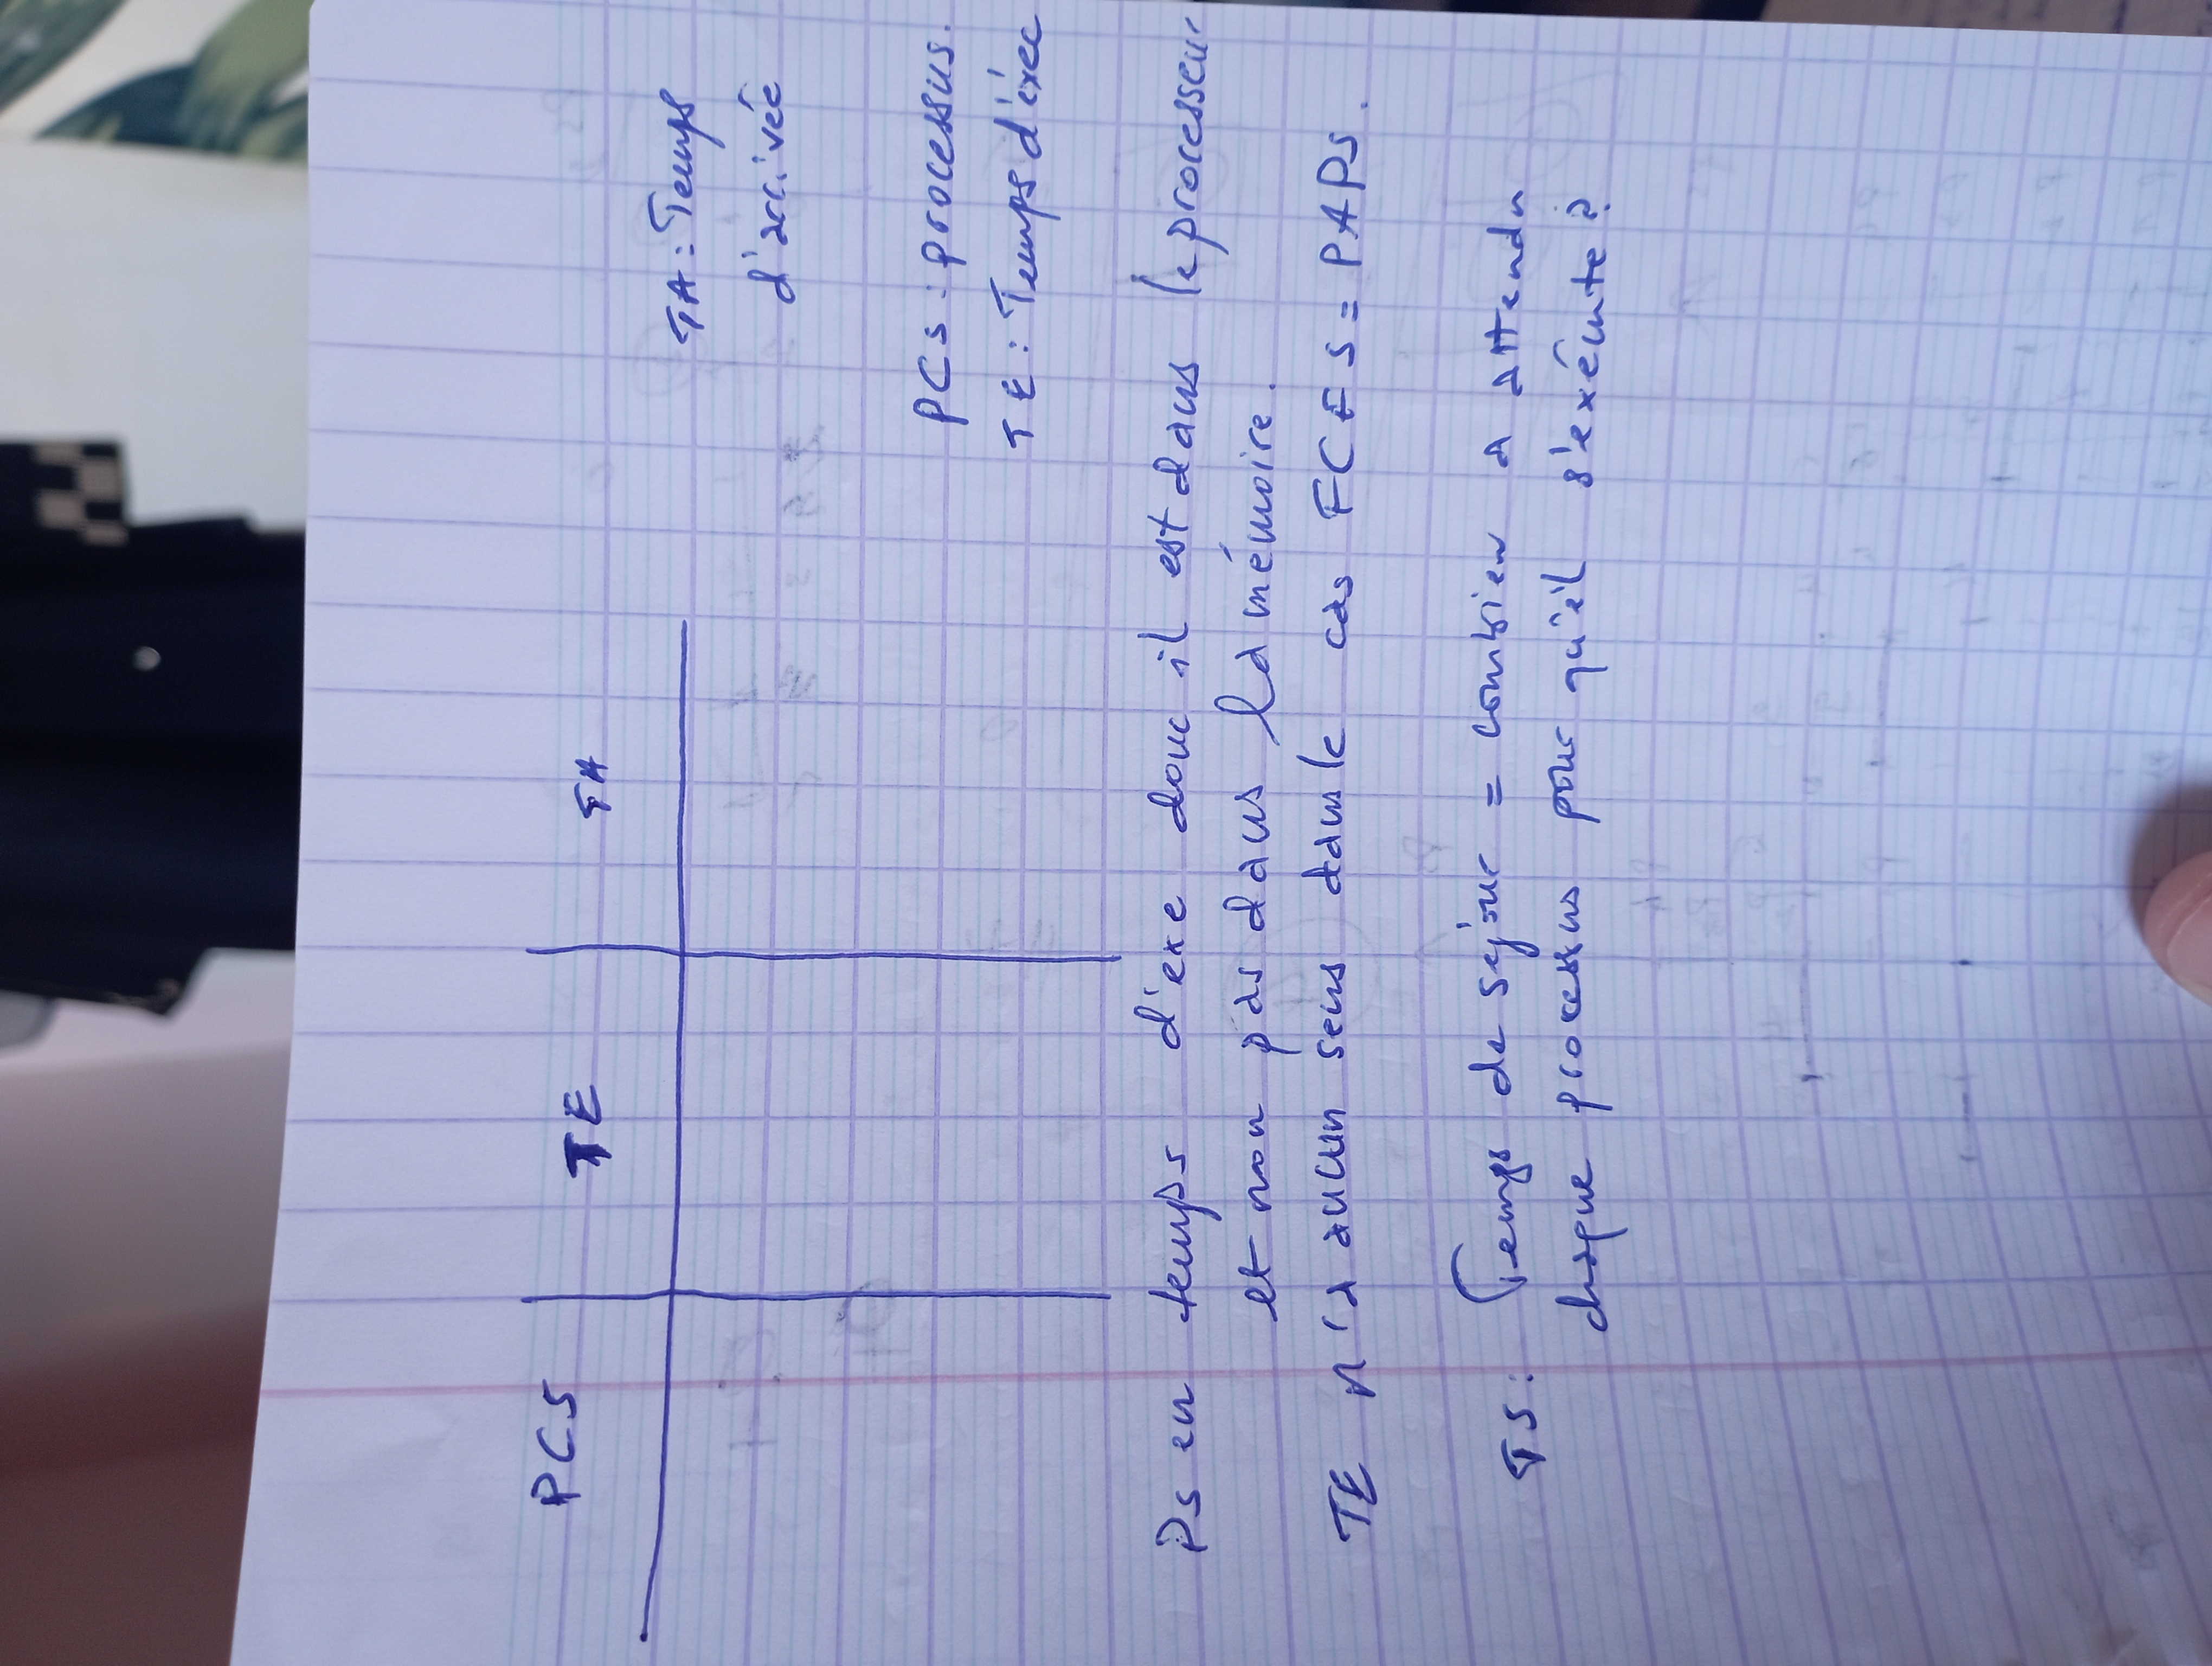 PCS TE TA
TA : Temps
d'arrivée
PCs : processus.
TE : Temps d'éxec
Ps en temps d'exe donc il est dans le processeur
et non pas dans la mémoire.
TE n'a aucun sens dans le cas FCFS = PAPS.
TS : Temps de sejour = combien a attendu
chaque processus pour qu'il s'exécute ?